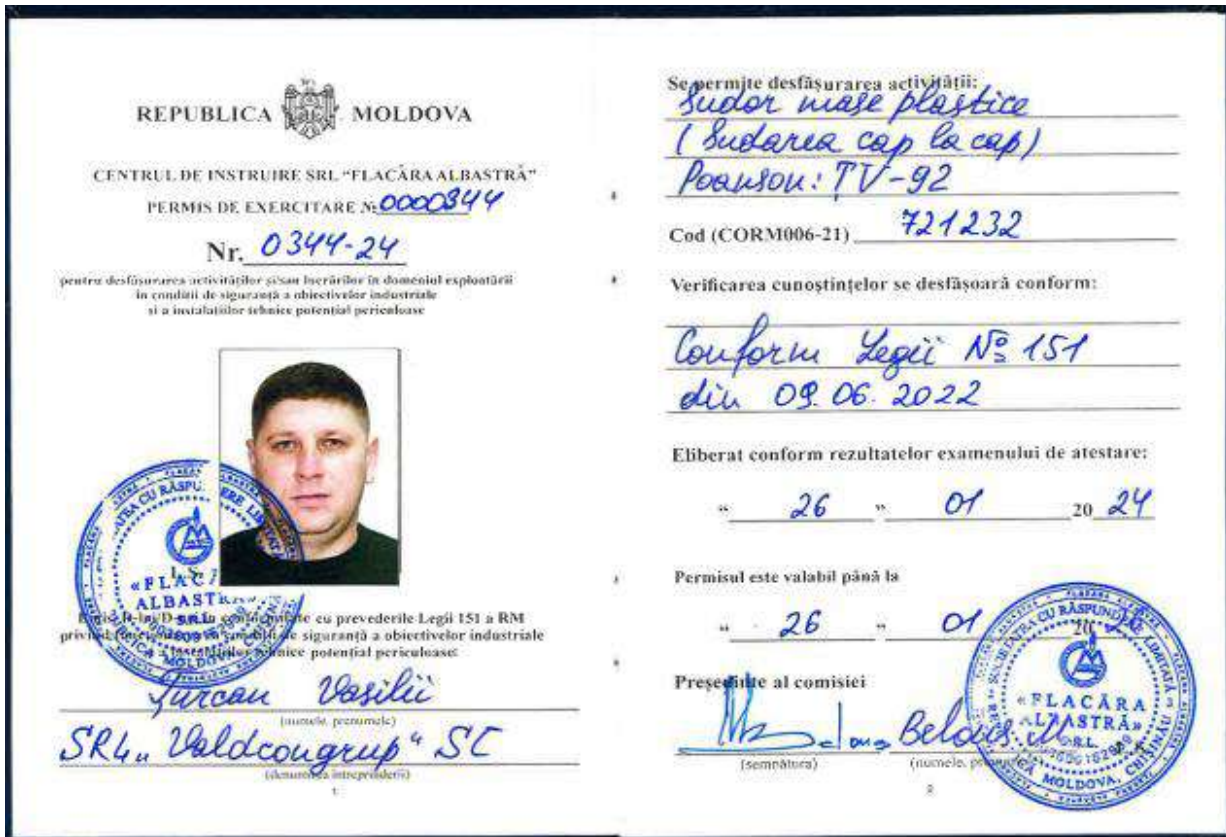 REPUBLICA MOLDOVA
CENTRUL DE INSTRUIRE SRL “FLACĂRA ALBASTRĂ”
PERMIS DE EXERCITARE № 0000344
Nr. 0344-24
pentru desfășurarea activităților și/sau lucrărilor în domeniul exploatării
în condiții de siguranță a obiectivelor industriale
și a instalațiilor tehnice potențial periculoase
L.Ș.
«FLAC
ALBASTR
cu prevederile Legii 151 a RM
de siguranță a obiectivelor industriale
tehnice potențial periculoase:
Țurcan Vasilii
(numele, prenumele)
SRL „Valdcongrup“ SC
(denumirea întreprinderii)
1
Se permite desfășurarea activității:
Sudor mase plastice
(Sudarea cap la cap)
Poanson: TV-92
Cod (CORM006-21) 721232
Verificarea cunoștințelor se desfășoară conform:
Conform Legii № 151
din 09.06.2022
Eliberat conform rezultatelor examenului de atestare:
“ 26 ” 01 20 24
Permisul este valabil până la
“ 26 ” 01 20
Președinte al comisiei
Belous M.
(semnătura) (numele,
«FLACĂRA
ALBASTRĂ»
S.R.L.
SOCIETATEA CU RĂSPUNDERE LIMITATĂ
MOLDOVA, CHIȘINĂU
2